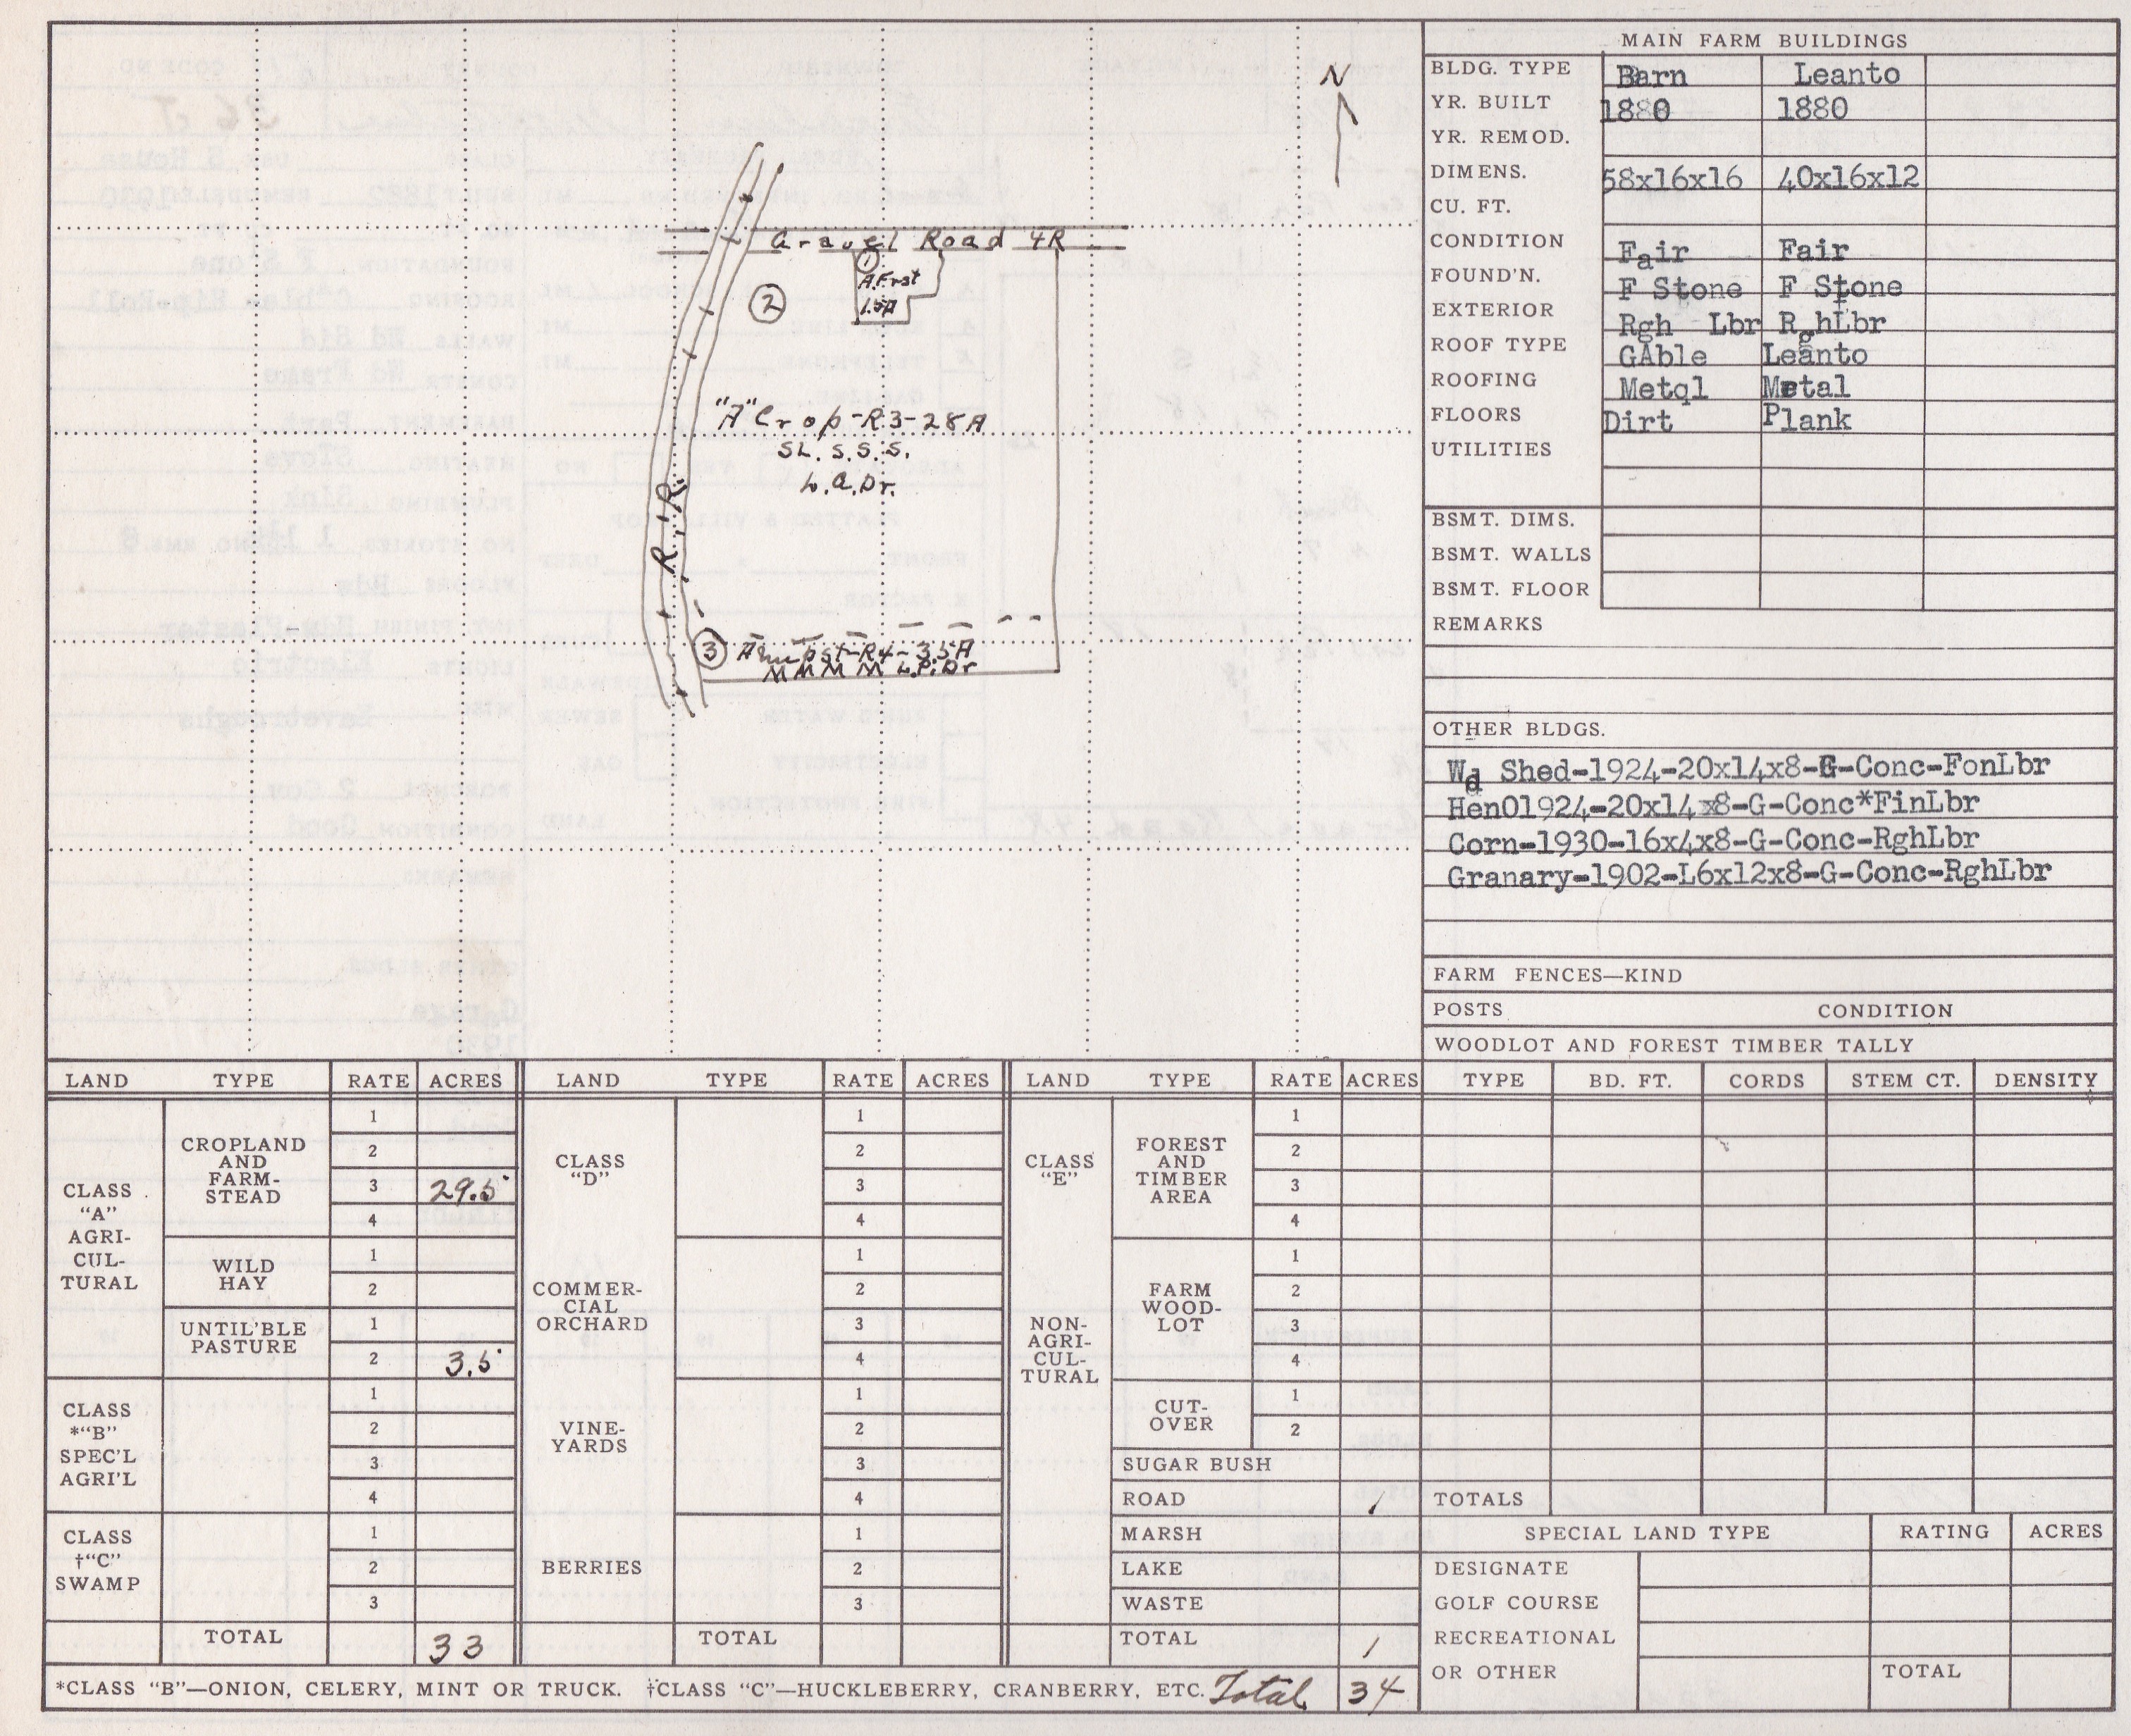 N
Gravel Road 4R
1
A.Frst
1.5A
2
"A" Crop-R3-28A
SL. S.S.S.
L.a.Dr.
R.R.
3 A
pst-R4-3.5A
M M M M L.P.Dr
MAIN FARM BUILDINGS
BLDG. TYPE Barn Leanto
YR. BUILT 1880 1880
YR. REMOD.
DIMENS. 58x16x16 40x16x12
CU. FT.
CONDITION Fair Fair
FOUND'N. F Stone F Stone
EXTERIOR Rgh Lbr RghLbr
ROOF TYPE GAble Leanto
ROOFING Metql Metal
FLOORS Dirt Plank
UTILITIES
BSMT. DIMS.
BSMT. WALLS
BSMT. FLOOR
REMARKS
OTHER BLDGS.
Wd Shed-1924-20x14x8-G-Conc-FonLbr
Hen01924-20x14x8-G-Conc*FinLbr
Corn-1930-16x4x8-G-Conc-RghLbr
Granary-1902-L6x12x8-G-Conc-RghLbr
FARM FENCES—KIND
POSTS CONDITION
WOODLOT AND FOREST TIMBER TALLY
TYPE BD. FT. CORDS STEM CT. DENSITY
TOTALS
SPECIAL LAND TYPE RATING ACRES
DESIGNATE
GOLF COURSE
RECREATIONAL
OR OTHER TOTAL
LAND TYPE RATE ACRES
CLASS
"A"
AGRI-
CUL-
TURAL
CROPLAND
AND
FARM-
STEAD
1
2
3 29.5
4
WILD
HAY
1
2
UNTIL'BLE
PASTURE
1
2 3.5
CLASS
*"B"
SPEC'L
AGRI'L
1
2
3
4
CLASS
†"C"
SWAMP
1
2
3
TOTAL 33
LAND TYPE RATE ACRES
CLASS
"D"
COMMER-
CIAL
ORCHARD
1
2
3
4
1
2
3
4
VINE-
YARDS
1
2
3
4
BERRIES
1
2
3
TOTAL
LAND TYPE RATE ACRES
CLASS
"E"
NON-
AGRI-
CUL-
TURAL
FOREST
AND
TIMBER
AREA
1
2
3
4
FARM
WOOD-
LOT
1
2
3
4
CUT-
OVER
1
2
SUGAR BUSH
ROAD 1
MARSH
LAKE
WASTE
TOTAL 1
*CLASS "B"—ONION, CELERY, MINT OR TRUCK. †CLASS "C"—HUCKLEBERRY, CRANBERRY, ETC. Total 34